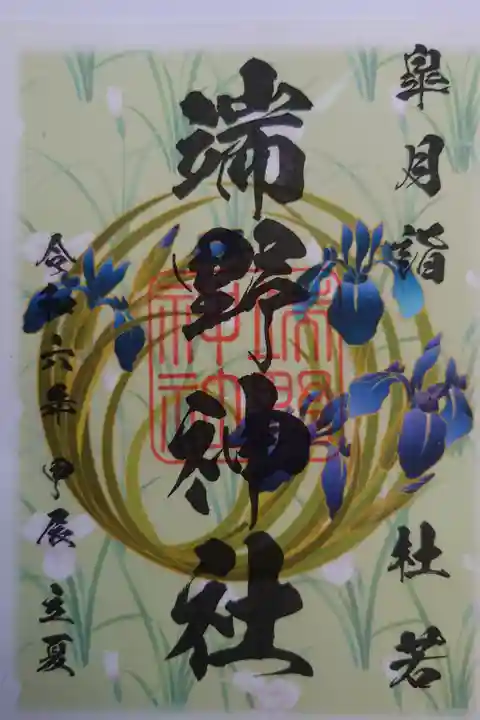 皐月詣
杜若
端野神社
端野
神社
令和六年甲辰立夏